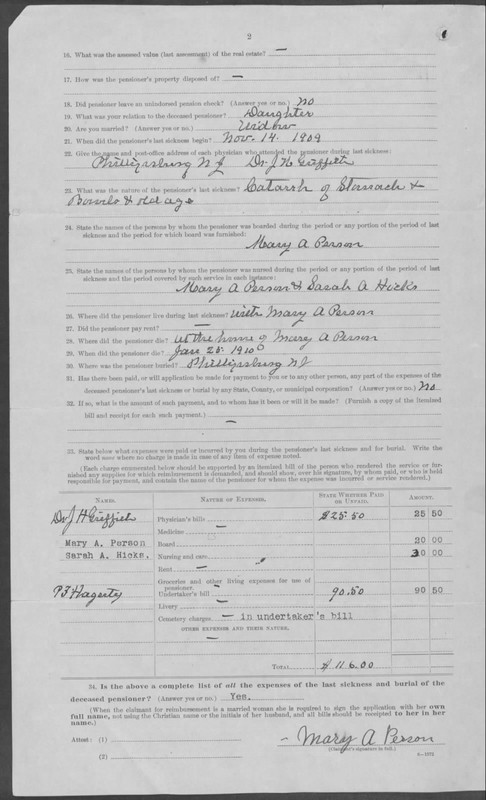 2
16. What was the assessed value (last assessment) of the real estate? —
17. How was the pensioner's property disposed of? —
18. Did pensioner leave an unindorsed pension check? (Answer yes or no.) No
19. What was your relation to the deceased pensioner? Daughter
20. Are you married? (Answer yes or no.) Widow
21. When did the pensioner's last sickness begin? Nov. 14. 1909
22. Give the name and post-office address of each physician who attended the pensioner during last sickness:
Phillipsburg N J Dr J H Griffith
23. What was the nature of the pensioner's last sickness? Catarrh of Stomach &
Bowels & old age
24. State the names of the persons by whom the pensioner was boarded during the period or any portion of the period of last
sickness and the period for which board was furnished:
Mary A Person
25. State the names of the persons by whom the pensioner was nursed during the period or any portion of the period of last
sickness and the period covered by such service in each instance:
Mary A Person & Sarah A Hicks
26. Where did the pensioner live during last sickness? with Mary A Person
27. Did the pensioner pay rent? —
28. Where did the pensioner die? at the home of Mary A Person
29. When did the pensioner die? Jan 25. 1910
30. Where was the pensioner buried? Phillipsburg NJ
31. Has there been paid, or will application be made for payment to you or to any other person, any part of the expenses of the
deceased pensioner's last sickness or burial by any State, County, or municipal corporation? (Answer yes or no.) No
32. If so, what is the amount of each payment, and to whom has it been or will it be made? (Furnish a copy of the itemized
bill and receipt for each such payment.)
—
33. State below what expenses were paid or incurred by you during the pensioner's last sickness and for burial. Write the
word none where no charge is made in case of any item of expense noted.
(Each charge enumerated below should be supported by an itemized bill of the person who rendered the service or fur-
nished any supplies for which reimbursement is demanded, and should show, over his signature, by whom paid, or who is held
responsible for payment, and contain the name of the pensioner for whom the expense was incurred or service rendered.)
Names. Nature of Expenses. State Whether Paid or Unpaid. Amount.
Dr J H Griffith Physician's bills $25.50 25 50
Medicine —
Mary A. Person Board 20 00
Sarah A. Hicks. Nursing and care 00
Rent —
Groceries and other living expenses for use of
pensioner —
P F Hagerty Undertaker's bill 90.50 90 50
Livery —
Cemetery charges — in undertaker's bill
OTHER EXPENSES AND THEIR NATURE.
—
Total $ 116.00
34. Is the above a complete list of all the expenses of the last sickness and burial of the
deceased pensioner? (Answer yes or no.) Yes.
(When the claimant for reimbursement is a married woman she is required to sign the application with her own
full name, not using the Christian name or the initials of her husband, and all bills should be receipted to her in her
name.)
Attest: (1) Mary A Person
(Claimant's signature in full.)
(2)